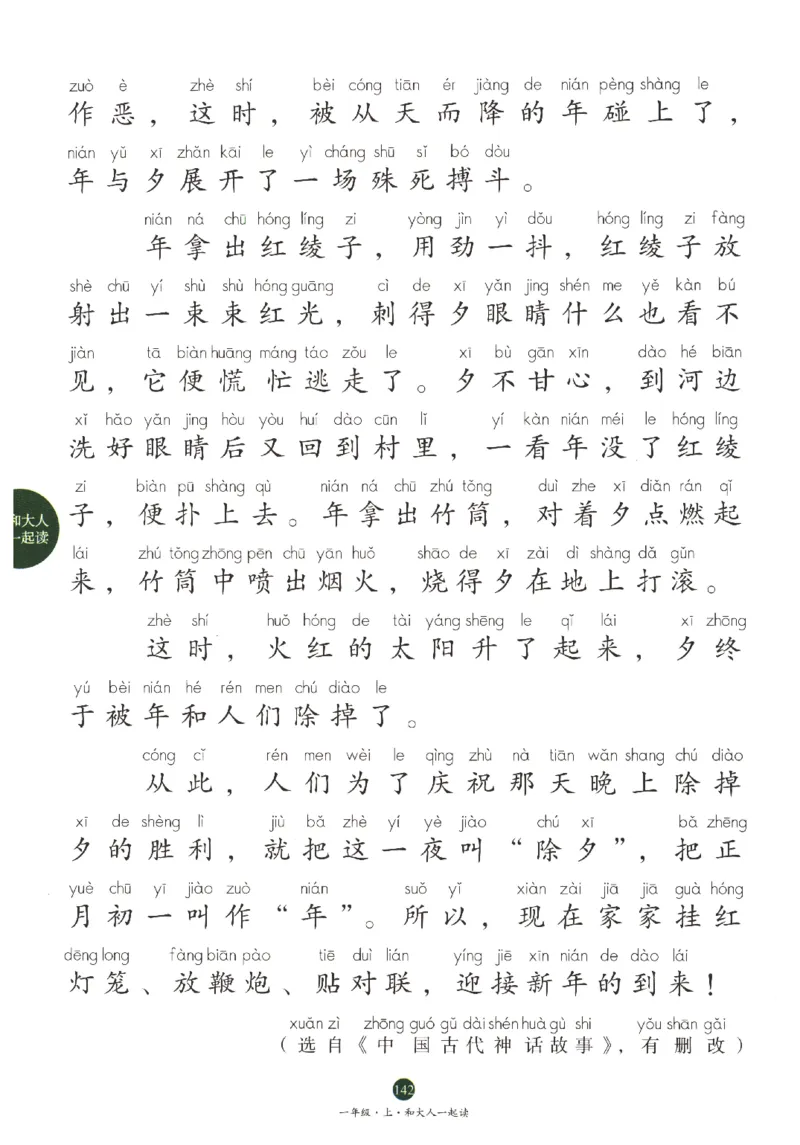 zuò è zhè shí bèi cóng tiān ér jiàng de nián pèng shàng le
作恶，这时，被从天而降的年碰上了，
nián yǔ xī zhǎn kāi le yì cháng shū sǐ bó dòu
年与夕展开了一场殊死搏斗。
nián ná chū hóng líng zi yòng jìn yì dǒu hóng líng zi fàng
年拿出红绫子，用劲一抖，红绫子放
shè chū yí shù shù hóng guāng cì de xī yǎn jing shén me yě kàn bú
射出一束束红光，刺得夕眼睛什么也看不
jiàn tā biàn huāng máng táo zǒu le xī bù gān xīn dào hé biān
见，它便慌忙逃走了。夕不甘心，到河边
xǐ hǎo yǎn jing hòu yòu huí dào cūn lǐ yí kàn nián méi le hóng líng
洗好眼睛后又回到村里，一看年没了红绫
zi biàn pū shàng qù nián ná chū zhú tǒng duì zhe xī diǎn rán qǐ
子，便扑上去。年拿出竹筒，对着夕点燃起
lái zhú tǒng zhōng pēn chū yān huǒ shāo de xī zài dì shàng dǎ gǔn
来，竹筒中喷出烟火，烧得夕在地上打滚。
zhè shí huǒ hóng de tài yáng shēng le qǐ lái xī zhōng
这时，火红的太阳升了起来，夕终
yú bèi nián hé rén men chú diào le
于被年和人们除掉了。
cóng cǐ rén men wèi le qìng zhù nà tiān wǎn shang chú diào
从此，人们为了庆祝那天晚上除掉
xī de shèng lì jiù bǎ zhè yí yè jiào chú xī bǎ zhēng
夕的胜利，就把这一夜叫“除夕”，把正
yuè chū yī jiào zuò nián suǒ yǐ xiàn zài jiā jiā guà hóng
月初一叫作“年”。所以，现在家家挂红
dēng long fàng biān pào tiē duì lián yíng jiē xīn nián de dào lái
灯笼、放鞭炮、贴对联，迎接新年的到来！
xuǎn zì zhōng guó gǔ dài shén huà gù shi yǒu shān gǎi
（选自《中国古代神话故事》，有删改）
和大人
一起读
142
一年级·上·和大人一起读